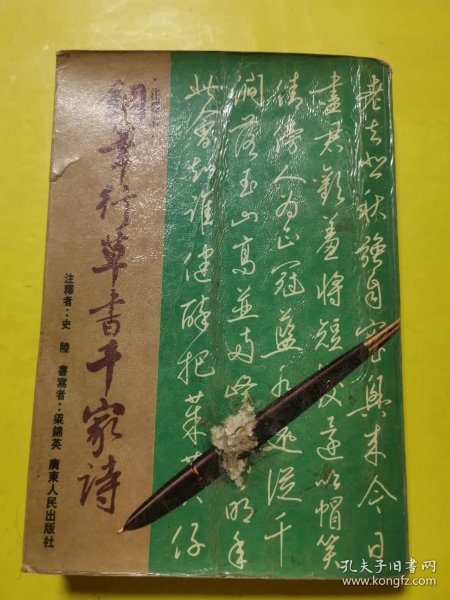 老去悲秋強自寬興來今日
盡君歡羞將短髮還吹帽笑
倩傍人為正冠藍水遠從千
澗落玉山高並兩峰明年
此會知誰健醉把茱萸仔
鋼筆行草書千家詩
注譯者：史陸 書寫者：梁錦英 廣東人民出版社
孔夫子旧书网
www.kongfz.com